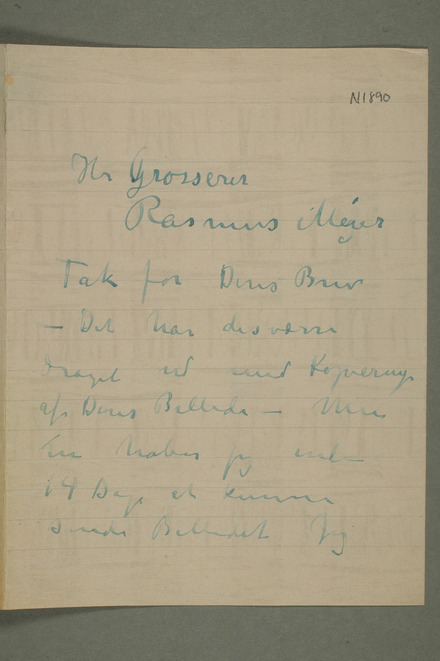 N1890
Hr Grosserer
Rasmus Meyer
Tak for Deres Brev
– Det har desværre
draget ud med Kopiering
af Deres Billede – Men
nu haaber jeg inden
14 Dage at kunne
sende Billedet Jeg